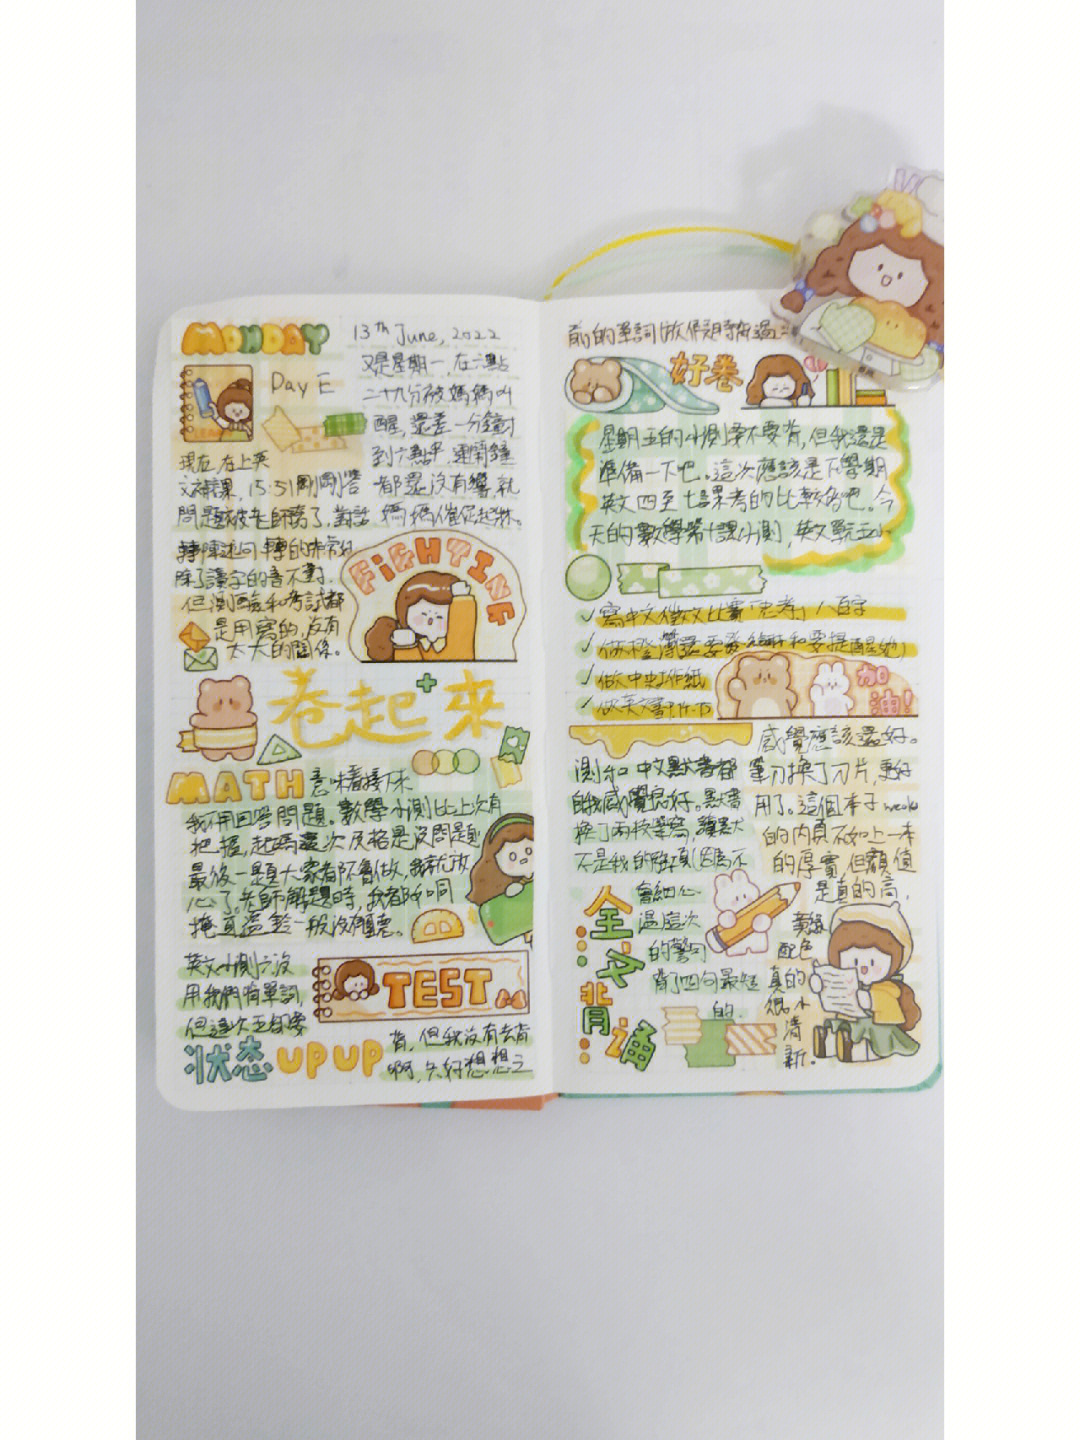 MONDAY
13th June, 2022
Day E
又是星期一,在六點
二十九分被媽媽叫
醒,還差一分鐘才
到六點半,連鬧鐘
都還沒有響,就
媽媽催促起床。
現在在上英
文補課,15:51剛剛答
問題被老師誇了,對話
轉陳述句轉的非常好
除了讀字的音不對,
但測驗和考試都
是用寫的,沒有
太大的關係。
FIGHTING
卷起來
MATH 意味着接下來
我不用回答問題。數學小測比上次有
把握,起碼這次及格是沒問題
最後一題大家都不會做,我就放
心了,老師解題時,我都如同
掩耳盜鈴一般沒有聽。
TEST
英文小測六沒
用我們有單詞,
但這次五卻要
背,但我沒有去背
啊,只好想想之
状态UPUP
前的單詞放假時有過
好卷
星期五的小測要不要背,但我還是
準備一下吧。這次應該是下學期
英文四至七課考的比較好吧。今
天的數學第十課小測,英文單元小
✓寫中文徵文比賽「思考」八百字
✓做
✓做中史工作紙
✓做英文書P.14-15
加油!
感覺應該還好。
測和中文默書都
我感覺良好。默書
換了兩枝筆寫,讓默
不是我的強項,因為不
會細心
溫這次
的警句
背了四句最短
的。
全文背诵
筆刀換了刀片,更好
用了。這個本子weeks
的內頁不如上一本
的厚實,但顏值
是真的高,
黃綠
配色
真的
很小
清
新。